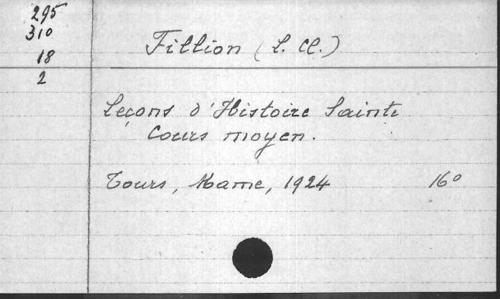 295
310
18
2
Fillion (L. Cl.)
Leçons d'Histoire Sainte
Cours moyen.
Tours, Mame, 1924 16°